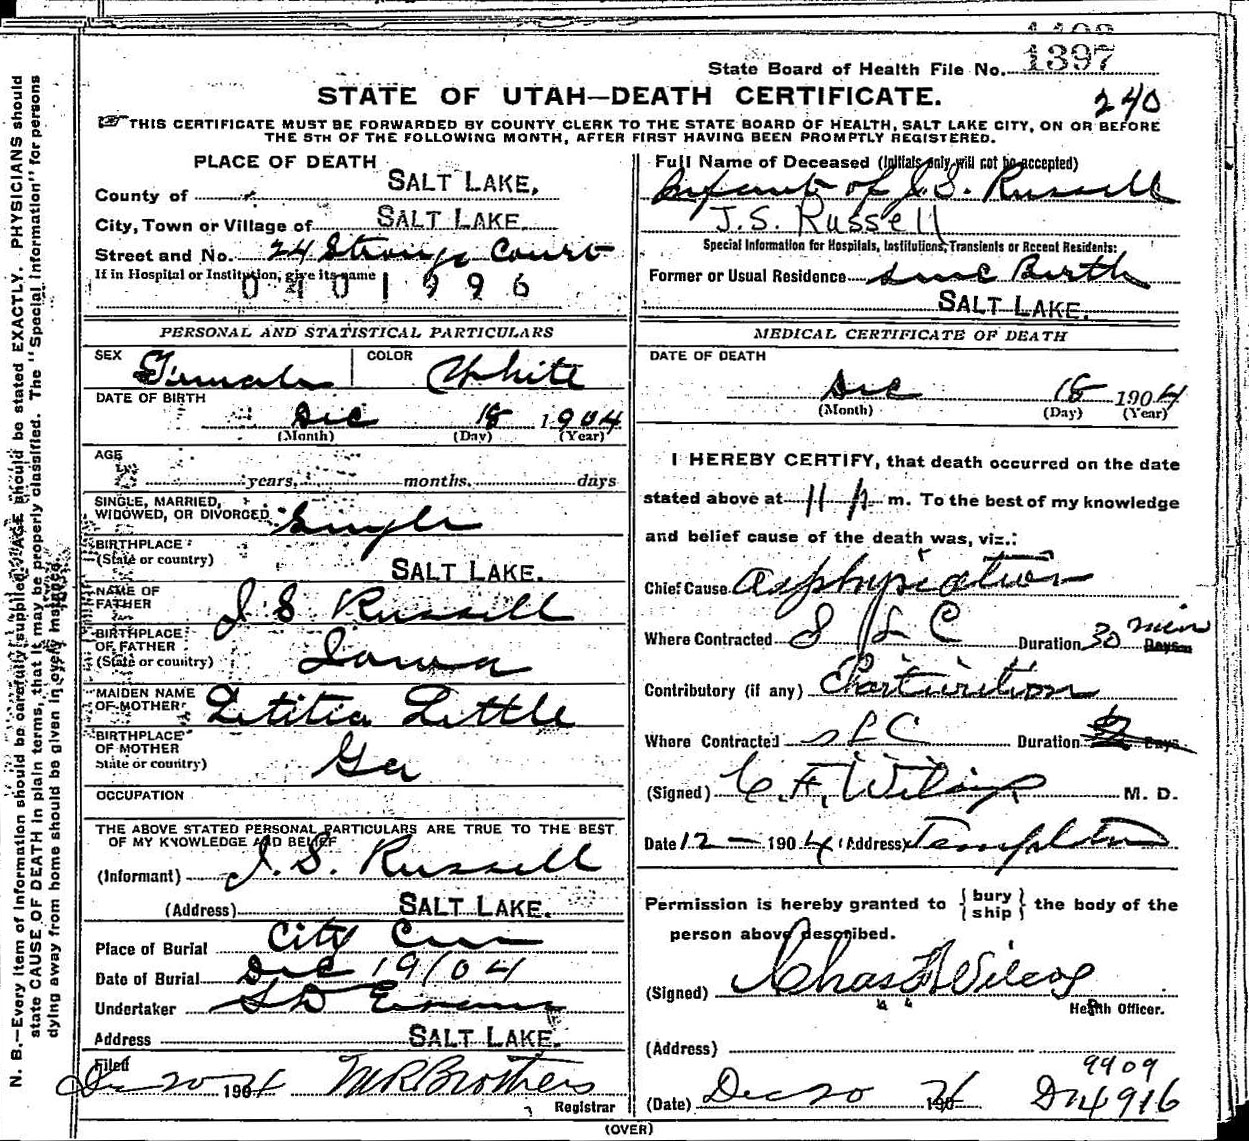 1397
State Board of Health File No.
STATE OF UTAH—DEATH CERTIFICATE.
240
THIS CERTIFICATE MUST BE FORWARDED BY COUNTY CLERK TO THE STATE BOARD OF HEALTH, SALT LAKE CITY, ON OR BEFORE
THE 5TH OF THE FOLLOWING MONTH, AFTER FIRST HAVING BEEN PROMPTLY REGISTERED.
PLACE OF DEATH
County of SALT LAKE.
City, Town or Village of SALT LAKE.
Street and No. 24 Strongs Court
If in Hospital or Institution, give its name
0401996
PERSONAL AND STATISTICAL PARTICULARS
SEX Female COLOR White
DATE OF BIRTH
Dec 18 1904
(Month) (Day) (Year)
AGE
years, months. days
SINGLE, MARRIED,
WIDOWED, OR DIVORCED Single
BIRTHPLACE
(State or country) SALT LAKE.
NAME OF
FATHER J S Russell
BIRTHPLACE
OF FATHER
(State or country) Iowa
MAIDEN NAME
OF MOTHER Letitia Little
BIRTHPLACE
OF MOTHER
State or country) Ga
OCCUPATION
THE ABOVE STATED PERSONAL PARTICULARS ARE TRUE TO THE BEST
OF MY KNOWLEDGE AND BELIEF
(Informant) J. S. Russell
(Address) SALT LAKE.
Place of Burial City Cem
Date of Burial Dec 19/04
Undertaker S D Evans
Address SALT LAKE.
Filed
Dec 20 1904 M R Brothers
Registrar
Full Name of Deceased (Initials only will not be accepted)
Infant of J. S. Russell
J.S. Russell
Special Information for Hospitals, Institutions, Transients or Recent Residents:
Former or Usual Residence since Birth
SALT LAKE.
MEDICAL CERTIFICATE OF DEATH
DATE OF DEATH
Dec 18 1904
(Month) (Day) (Year)
I HEREBY CERTIFY, that death occurred on the date
stated above at 11 p m. To the best of my knowledge
and belief cause of the death was, viz.:
Chief Cause Asphyxiation
Where Contracted S L C Duration 30 min Days
Contributory (if any) Parturition
Where Contracted S L C Duration Days
(Signed) C. F. Wilcox M. D.
Date 12 — 1904 (Address) Templeton
Permission is hereby granted to {bury
ship} the body of the
person above described.
(Signed) Chas F Wilcox
Health Officer.
(Address)
9909
(Date) Dec 20 1904 D 4916
(OVER)
N. B.—Every item of information should be carefully supplied. AGE should be stated EXACTLY. PHYSICIANS should
state CAUSE OF DEATH in plain terms, that it may be properly classified. The "Special Information" for persons
dying away from home should be given in every instance.